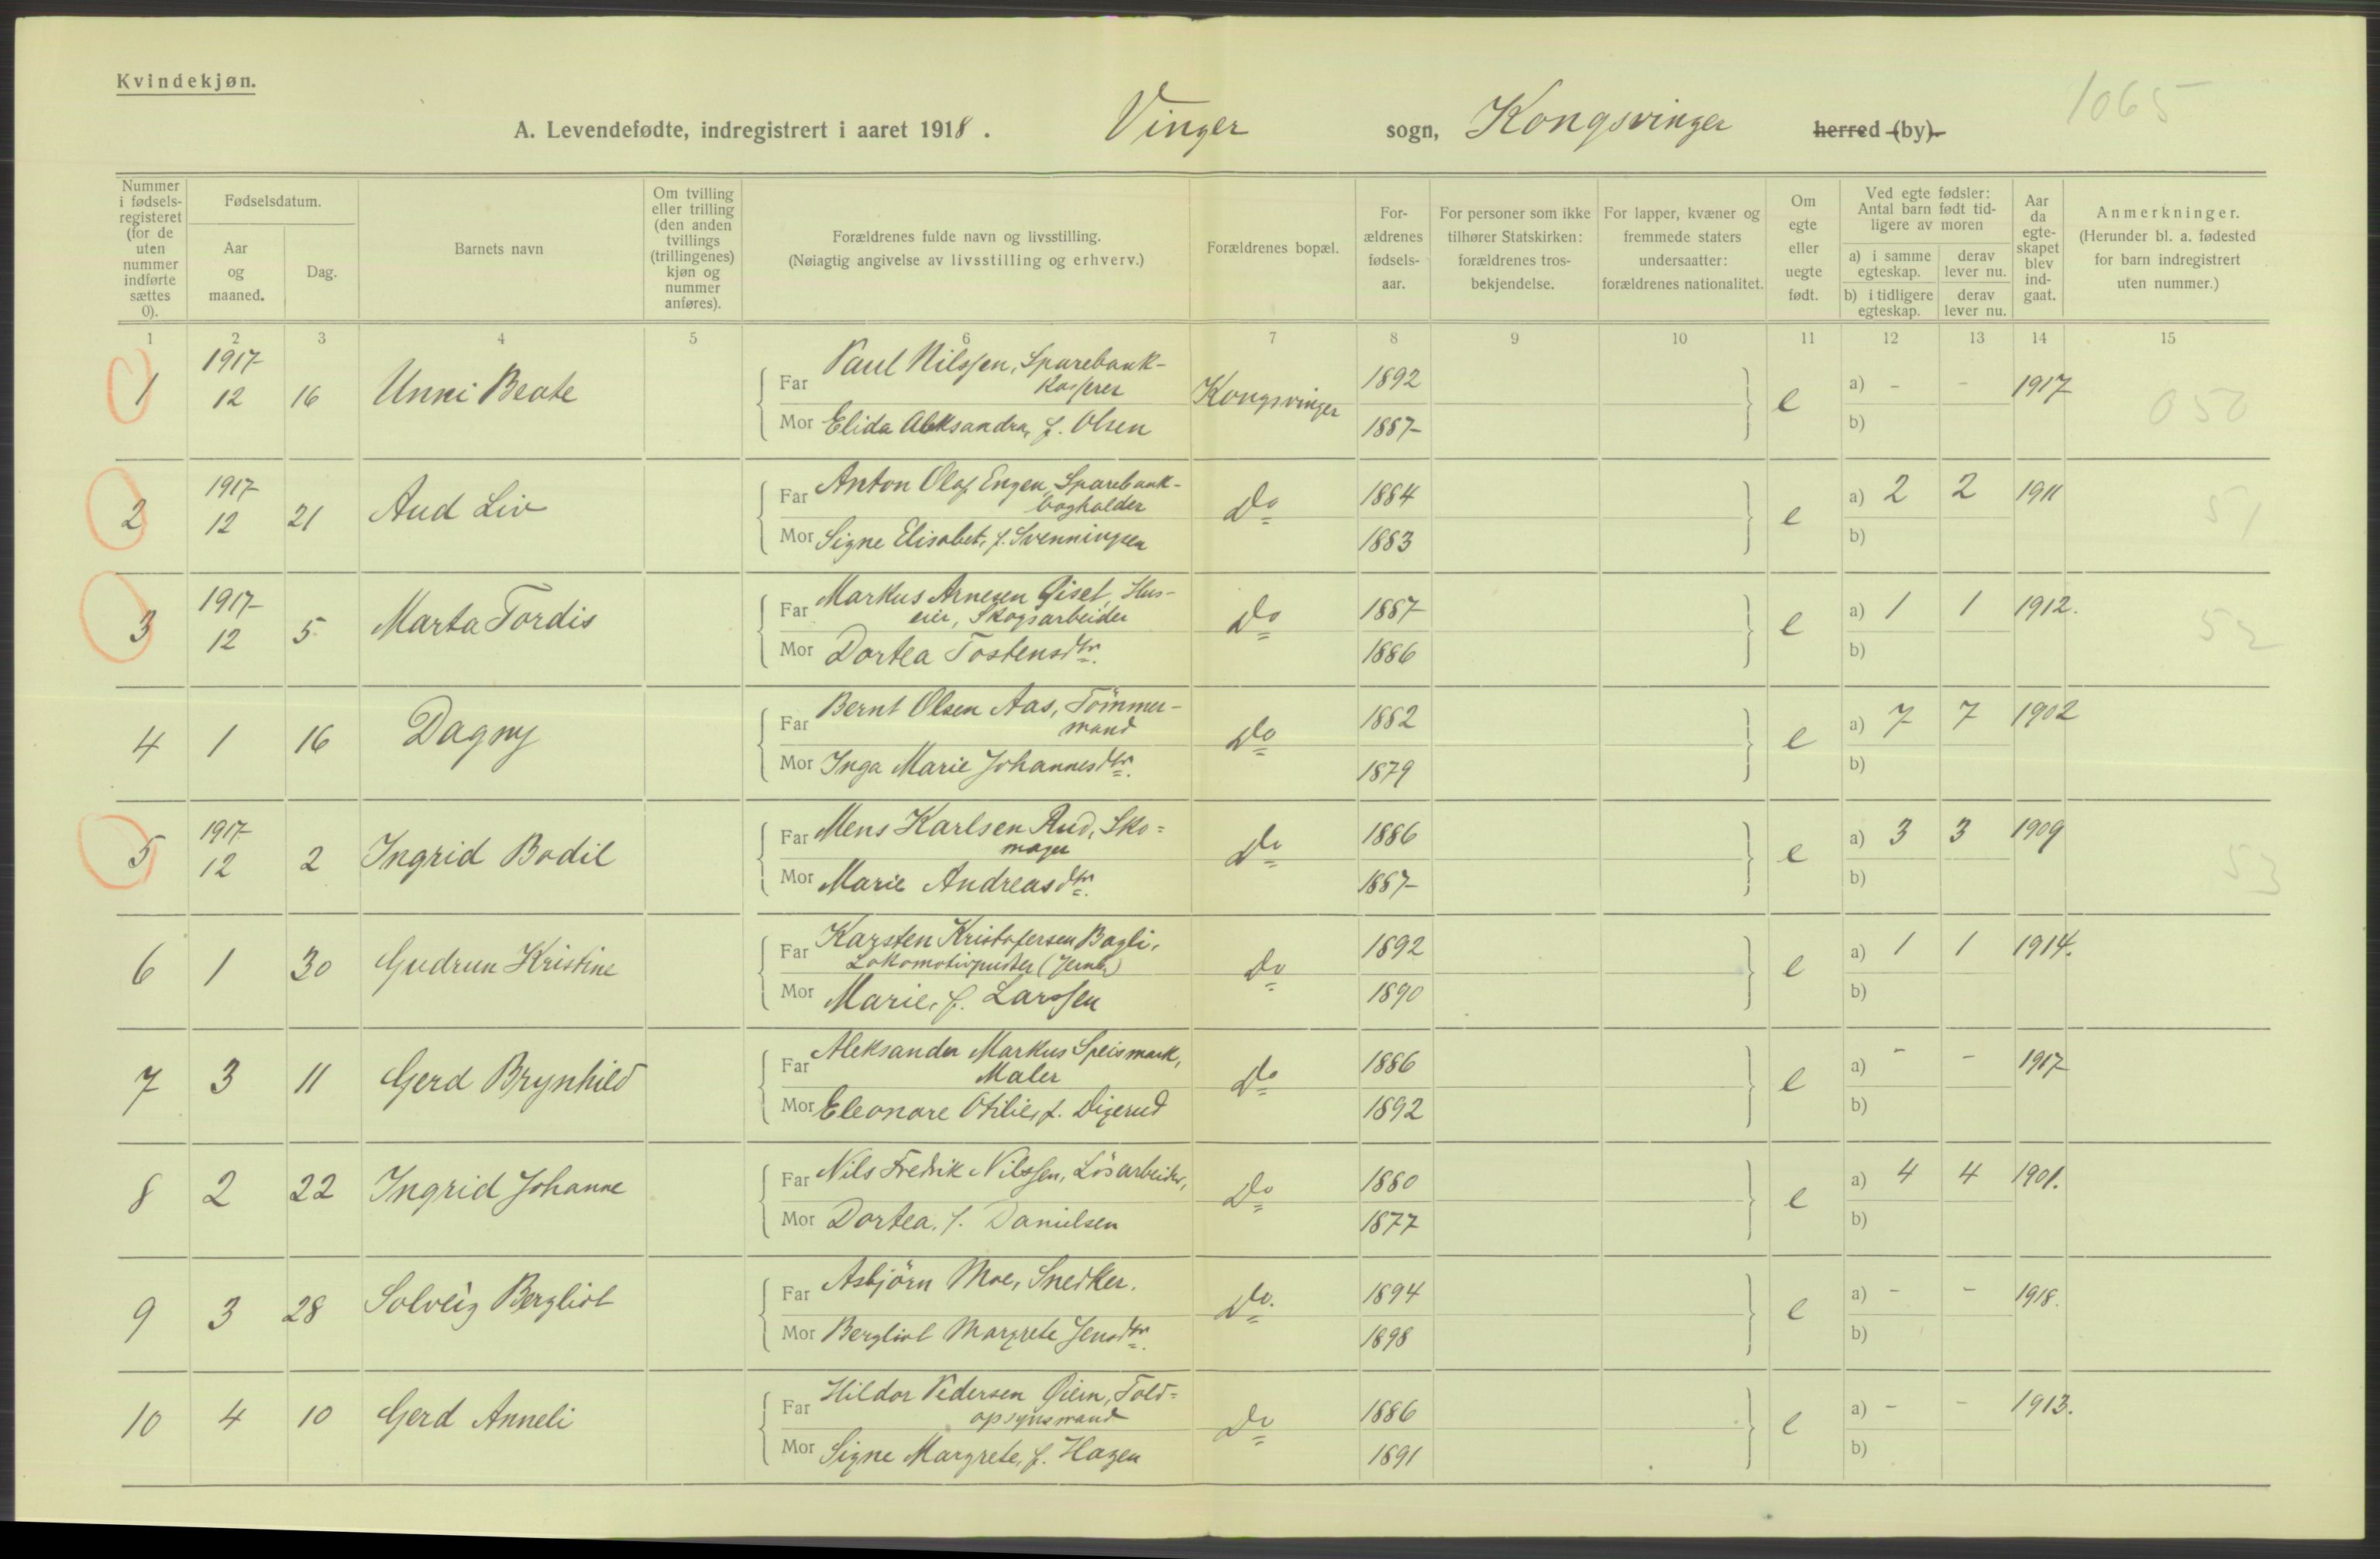 Kvindekjøn.
1065
A. Levendefødte, indregistrert i aaret 1918. Vinger sogn, Kongsvinger herred (by).
Nummer i fødsels-registeret (for de uten nummer indførte sættes 0).
Fødselsdatum.
Aar og maaned.
Dag.
Barnets navn
Om tvilling eller trilling (den anden tvillings (trillingenes) kjøn og nummer anføres).
Forældrenes fulde navn og livsstilling.
(Nøiagtig angivelse av livsstilling og erhverv.)
Forældrenes bopæl.
For-ældrenes fødsels-aar.
For personer som ikke tilhører Statskirken: forældrenes tros-bekjendelse.
For lapper, kvæner og fremmede staters undersaatter: forældrenes nationalitet.
Om egte eller uegte født.
Ved egte fødsler: Antal barn født tid-ligere av moren
a) i samme egteskap. derav lever nu.
b) i tidligere egteskap. derav lever nu.
Aar da egte-skapet blev ind-gaat.
Anmerkninger.
(Herunder bl. a. fødested for barn indregistrert uten nummer.)
1 2 3 4 5 6 7 8 9 10 11 12 13 14 15
1 1917 12 16 Unni Beate Far Paul Nilssen, Sparebank-
kasserer Kongsvinger 1892 e a) - - 1917 050
Mor Elida Aleksandra, f. Olsen 1887 b)
2 1917 12 21 Aud Liv Far Anton Olaf Engen, Sparebank-
bogholder Do 1884 e a) 2 2 1911 51
Mor Signe Elisabet, f. Svenningsen 1883 b)
3 1917 12 5 Marta Tordis Far Markus Arnesen Qisel, Hus-
eier, Skogsarbeider Do 1887 e a) 1 1 1912. 52
Mor Dortea Tostensdtr. 1886 b)
4 1 16 Dagny Far Bernt Olsen Aas, Tömmer-
mand Do 1882 e a) 7 7 1902
Mor Inga Marie Johannesdtr. 1879 b)
5 1917 12 2 Ingrid Bodil Far Mens Karlsen Rud, Sko=
mager Do 1886 e a) 3 3 1909 53
Mor Marie Andreasdtr. 1887 b)
6 1 30 Gudrun Kristine Far Karsten Kristofersen Bagli,
Lokomotivpudser (Jernb.) Do 1892 e a) 1 1 1914.
Mor Marie, f. Larssen 1890 b)
7 3 11 Gerd Brynhild Far Aleksander Markus Speismark,
Maler Do 1886 e a) - - 1917
Mor Eleonore Otilie, f. Digerud 1892 b)
8 2 22 Ingrid Johanne Far Nils Fredrik Nilssen, Lösarbeider, Do 1880 e a) 4 4 1901.
Mor Dortea, f. Danielsen 1877 b)
9 3 28 Solveig Bergliot Far Asbjörn Moe, Snedker. Do. 1894 e a) - - 1918.
Mor Bergliot Margrete Jensdtr. 1898 b)
10 4 10 Gerd Anneli Far Hildor Pedersen Qiern, Told=
opsynsmand Do 1886 e a) - - 1913.
Mor Signe Margrete, f. Hagen 1891 b)